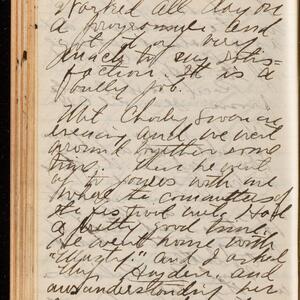 Worked all day on
a programme and
got it off very
much to my satis-
faction. It is a
bully job.
Met Charley Swan in
evening and we went
around together some
time. Then he went
up to Joyces with me
where the committee of
the festival met. Had
a pretty good time.
He went home with
and I asked
Hayden, and
misunderstanding her